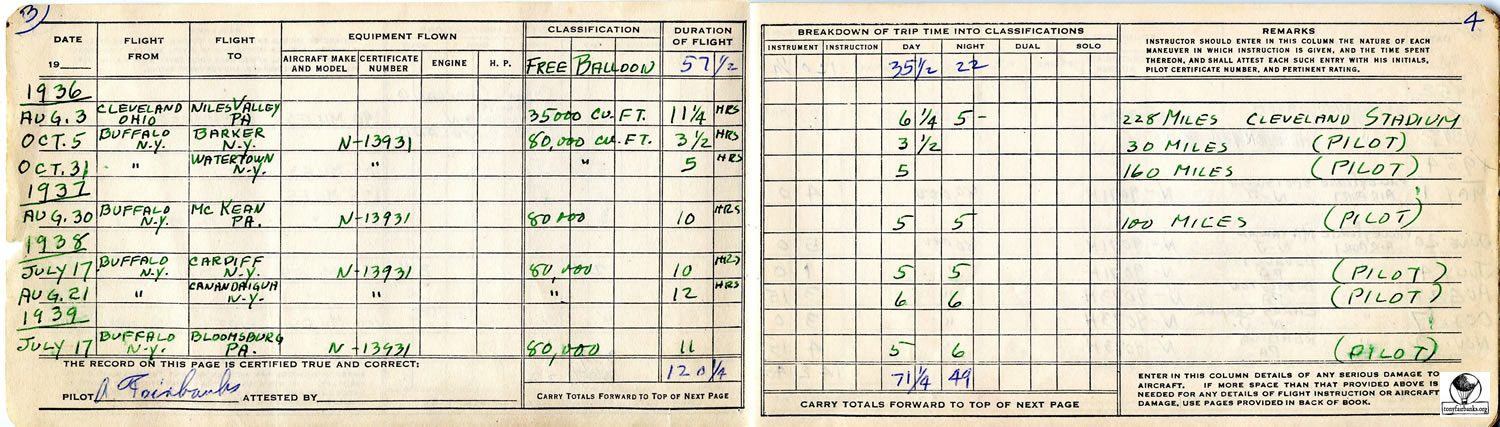 3)
DATE FLIGHT FLIGHT EQUIPMENT FLOWN CLASSIFICATION DURATION
19____ FROM TO AIRCRAFT MAKE AND MODEL CERTIFICATE NUMBER ENGINE H. P. FREE BALLOON OF FLIGHT 57 1/2
1936
AUG. 3 CLEVELAND OHIO NILES VALLEY PA 35000 CU. FT. 11 1/4 HRS
OCT. 5 BUFFALO N.Y. BARKER N.Y. N-13931 80,000 CU. FT. 3 1/2 HRS
OCT. 31 " WATERTOWN N.Y. " " 5 HRS
1937
AUG. 30 BUFFALO N.Y. MC KEAN PA. N-13931 80000 10 HRS
1938
JULY 17 BUFFALO N.Y. CARDIFF N.Y. N-13931 80,000 10 HRS
AUG. 21 " CANANDAIGUA N.Y. " " 12 HRS
1939
JULY 17 BUFFALO N.Y. BLOOMSBURG PA. N-13931 80,000 11
THE RECORD ON THIS PAGE IS CERTIFIED TRUE AND CORRECT: 120 1/4
PILOT A Fairbanks ATTESTED BY CARRY TOTALS FORWARD TO TOP OF NEXT PAGE
4
BREAKDOWN OF TRIP TIME INTO CLASSIFICATIONS REMARKS
INSTRUMENT INSTRUCTION DAY NIGHT DUAL SOLO
35 1/2 22
INSTRUCTOR SHOULD ENTER IN THIS COLUMN THE NATURE OF EACH
MANEUVER IN WHICH INSTRUCTION IS GIVEN, AND THE TIME SPENT
THEREON, AND SHALL ATTEST EACH SUCH ENTRY WITH HIS INITIALS,
PILOT CERTIFICATE NUMBER, AND PERTINENT RATING.
6 1/4 5- 228 MILES CLEVELAND STADIUM
3 1/2 30 MILES (PILOT)
5 160 MILES (PILOT)
5 5 100 MILES (PILOT)
5 5 (PILOT)
6 6 (PILOT)
5 6 (PILOT)
71 1/4 49
CARRY TOTALS FORWARD TO TOP OF NEXT PAGE
ENTER IN THIS COLUMN DETAILS OF ANY SERIOUS DAMAGE TO
AIRCRAFT. IF MORE SPACE THAN THAT PROVIDED ABOVE IS
NEEDED FOR ANY DETAILS OF FLIGHT INSTRUCTION OR AIRCRAFT
DAMAGE, USE PAGES PROVIDED IN BACK OF BOOK.
tonyfairbanks.org